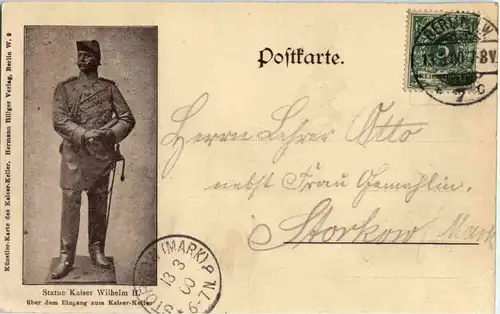 Künstler-Karte des Kaiser-Keller. Hermann Hillger Verlag, Berlin W. 9
Postkarte.
BERLIN W
13 3 00 7-8V.
* 7 c
5
Herrn Lehrer Otto
nebst Frau Gemahlin.
Storkow Mark
STORKOW (MARK)
13 3 00
6-7N.
Statue Kaiser Wilhelm II.
über dem Eingang zum Kaiser-Keller